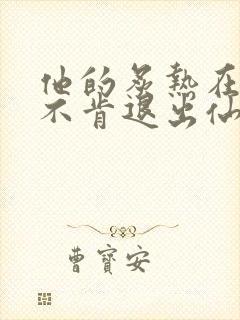 他的炙熱在
不肯退出仙
曹寶安